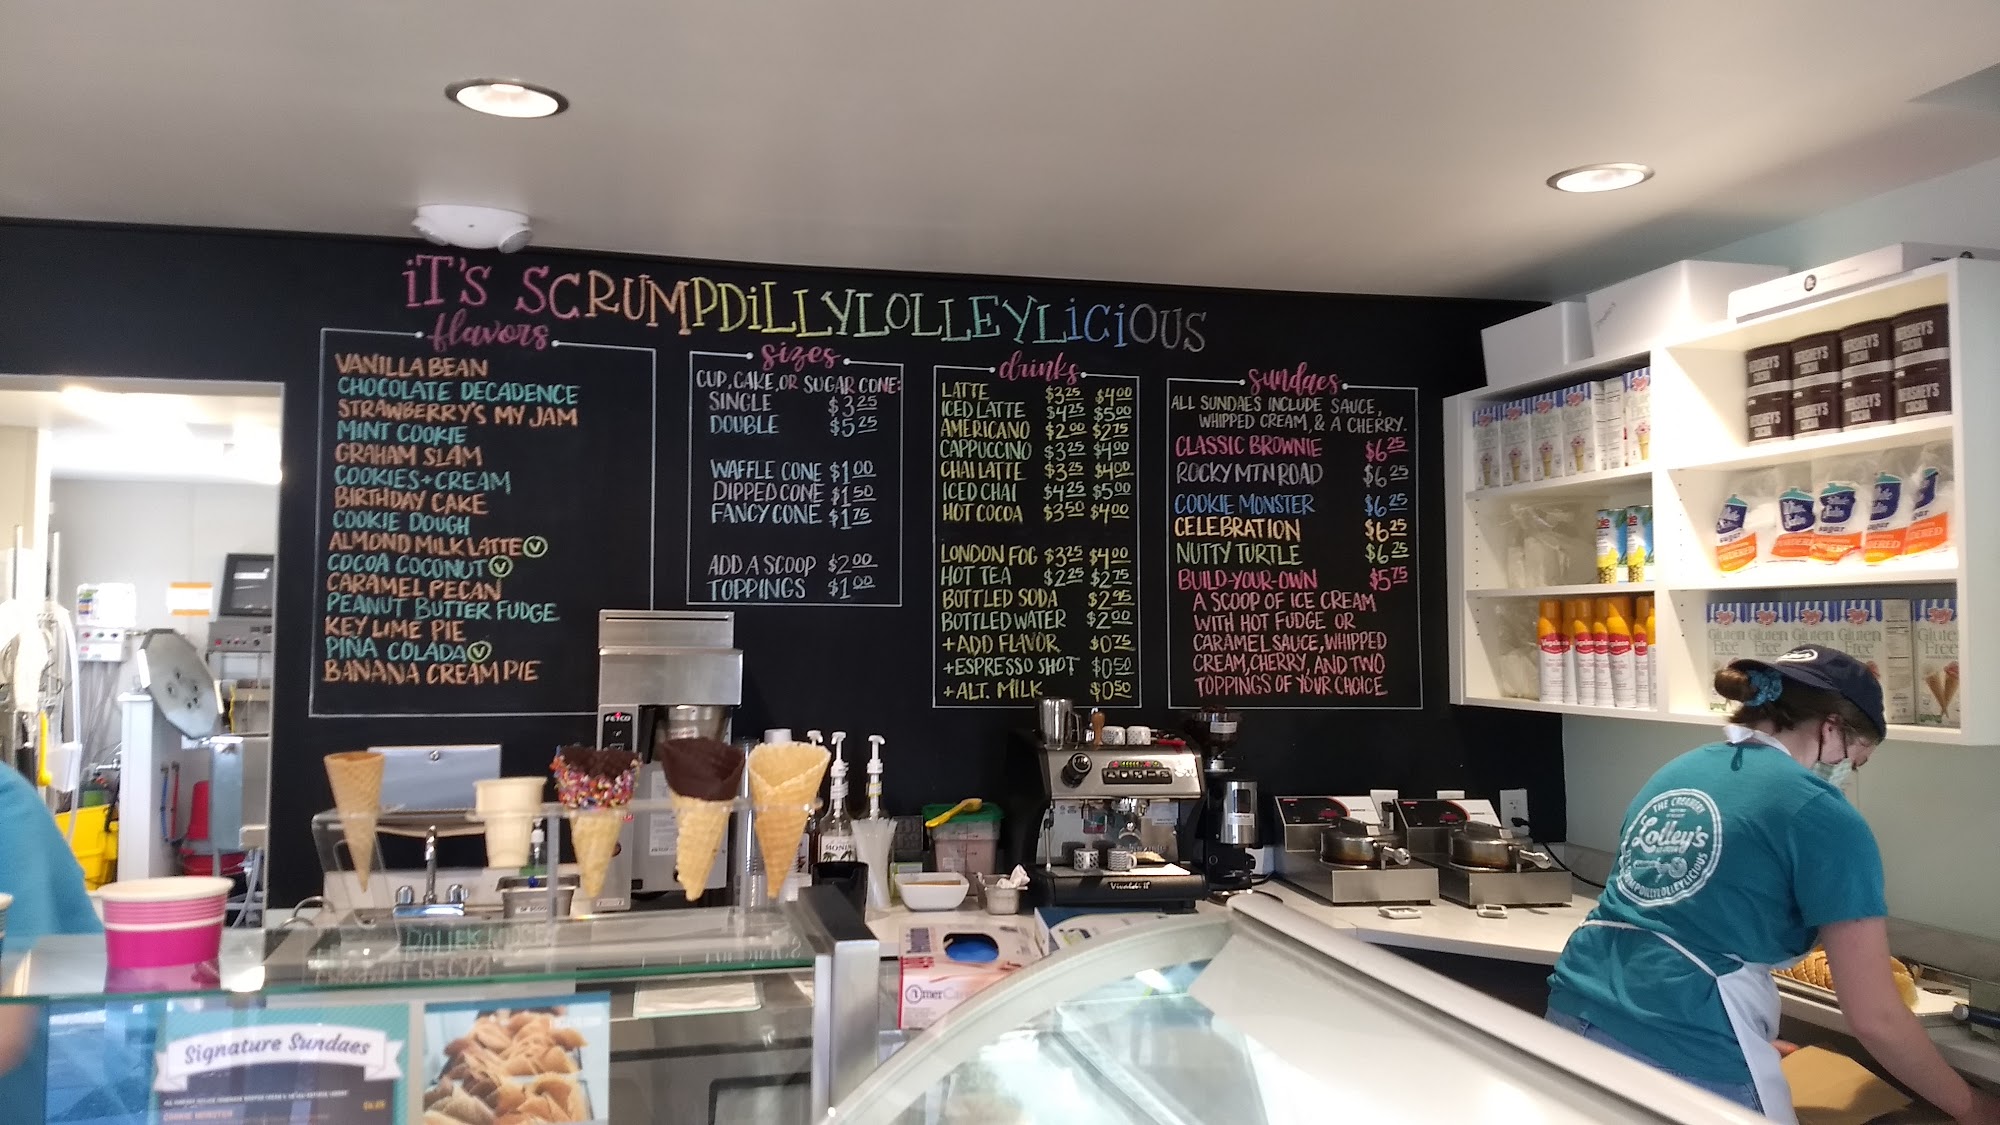 iT'S SCRUMPDiLLYLOLLEYLiCiOUS
flavors
VANILLA BEAN
CHOCOLATE DECADENCE
STRAWBERRY'S MY JAM
MINT COOKIE
GRAHAM SLAM
COOKIES+CREAM
BIRTHDAY CAKE
COOKIE DOUGH
ALMOND MILK LATTE V
COCOA COCONUT V
CARAMEL PECAN
PEANUT BUTTER FUDGE
KEY LIME PIE
PIÑA COLADA V
BANANA CREAM PIE
sizes
CUP, CAKE, OR SUGAR CONE:
SINGLE $3.25
DOUBLE $5.25
WAFFLE CONE $1.00
DIPPED CONE $1.50
FANCY CONE $1.75
ADD A SCOOP $2.00
TOPPINGS $1.00
drinks
LATTE $3.25 $4.00
ICED LATTE $4.25 $5.00
AMERICANO $2.00 $2.75
CAPPUCCINO $3.25 $4.00
CHAI LATTE $3.25 $4.00
ICED CHAI $4.25 $5.00
HOT COCOA $3.50 $4.00
LONDON FOG $3.25 $4.00
HOT TEA $2.25 $2.75
BOTTLED SODA $2.95
BOTTLED WATER $2.00
+ADD FLAVOR $0.75
+ESPRESSO SHOT $0.50
+ALT. MILK $0.50
sundaes
ALL SUNDAES INCLUDE SAUCE,
WHIPPED CREAM, & A CHERRY.
CLASSIC BROWNIE $6.25
ROCKY MTN ROAD $6.25
COOKIE MONSTER $6.25
CELEBRATION $6.25
NUTTY TURTLE $6.25
BUILD-YOUR-OWN $5.75
A SCOOP OF ICE CREAM
WITH HOT FUDGE OR
CARAMEL SAUCE, WHIPPED
CREAM, CHERRY, AND TWO
TOPPINGS OF YOUR CHOICE
HERSHEY'S
COCOA
HERSHEY'S
COCOA
sugar
Gluten
Free
Gluten
Free
Gluten
Free
FETCO
MONIN
Vivaldi II
THE CREAMERY
Lolley's
SCRUMPDILLYLOLLEYLICIOUS
Signature Sundaes
COOKIE MONSTER